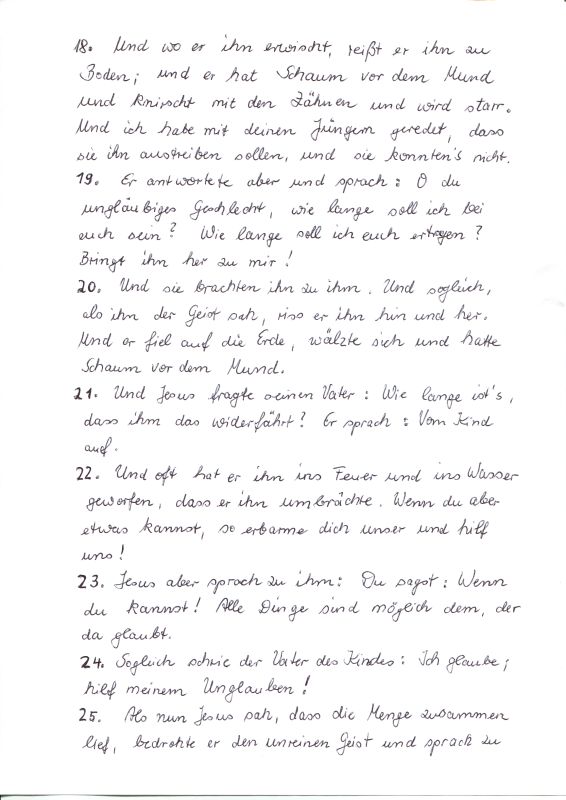 18. Und wo er ihn erwischt, reißt er ihn zu
Boden; und er hat Schaum vor dem Mund
und knirscht mit den Zähnen und wird starr.
Und ich habe mit deinen Jüngern geredet, dass
sie ihn austreiben sollen, und sie konnten's nicht.
19. Er antwortete aber und sprach: O du
ungläubiges Geschlecht, wie lange soll ich bei
euch sein? Wie lange soll ich euch ertragen?
Bringt ihn her zu mir!
20. Und sie brachten ihn zu ihm. Und sogleich,
als ihn der Geist sah, riss er ihn hin und her.
Und er fiel auf die Erde, wälzte sich und hatte
Schaum vor dem Mund.
21. Und Jesus fragte seinen Vater: Wie lange ist's,
dass ihm das widerfährt? Er sprach: Vom Kind
auf.
22. Und oft hat er ihn ins Feuer und ins Wasser
geworfen, dass er ihn umbrächte. Wenn du aber
etwas kannst, so erbarme dich unser und hilf
uns!
23. Jesus aber sprach zu ihm: Du sagst: Wenn
du kannst! Alle Dinge sind möglich dem, der
da glaubt.
24. Sogleich schrie der Vater des Kindes: Ich glaube;
hilf meinem Unglauben!
25. Als nun Jesus sah, dass die Menge zusammen
lief, bedrohte er den unreinen Geist und sprach zu